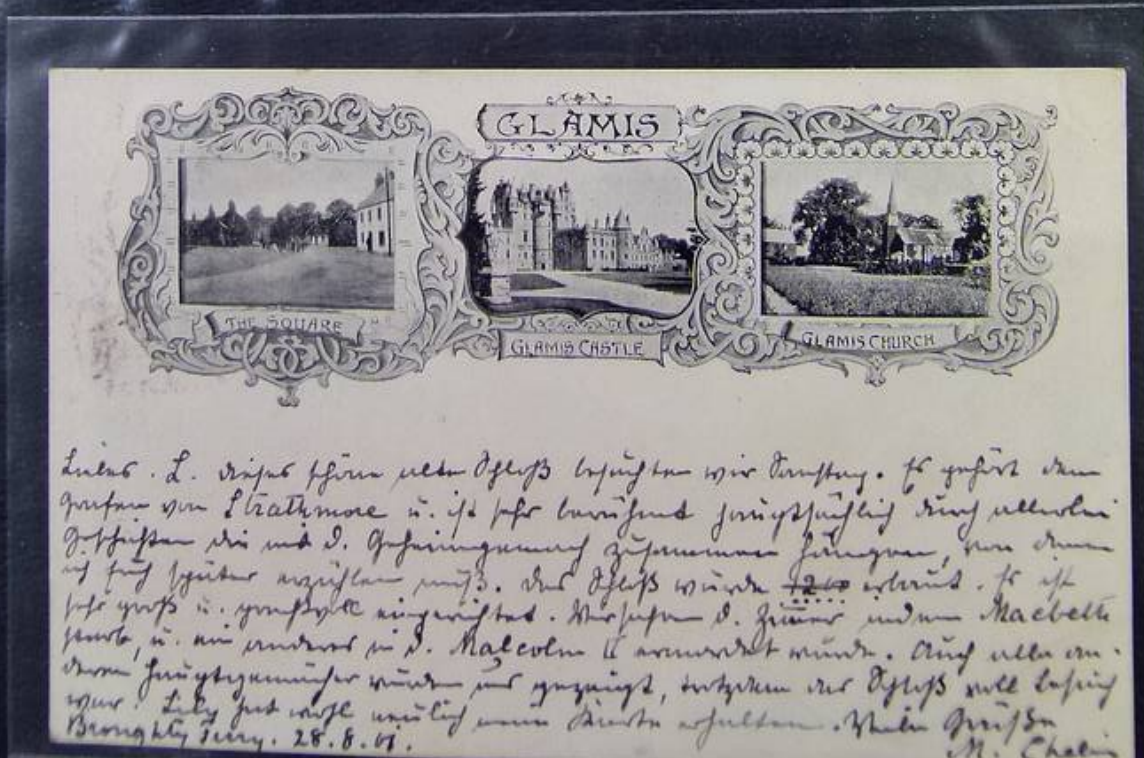 GLAMIS
THE SQUARE
GLAMIS CASTLE
GLAMIS CHURCH
Liebes. L. dieses schöne alte Schloß besuchten wir Samstag. Es gehört dem
Grafen von Strathmore u. ist sehr berühmt hauptsächlich durch allerlei
Geschichten die mit d. Geheimgemach zusammen hängen, von denen
ich Euch später erzählen muß. Das Schloß wurde 1200 erbaut. Es ist
sehr groß u. prachtvoll eingerichtet. Wir sahen d. Zimmer indem Macbeth
starb, u. ein anderes in d. Malcolm II ermordet wurde. Auch alle an-
deren Hauptgemächer wurden uns gezeigt, trotzdem das Schloß voll Besuch
war. Lily hat wohl neulich meine Karte erhalten. Viele Grüße
Broughty Ferry. 28.8.01.
M.